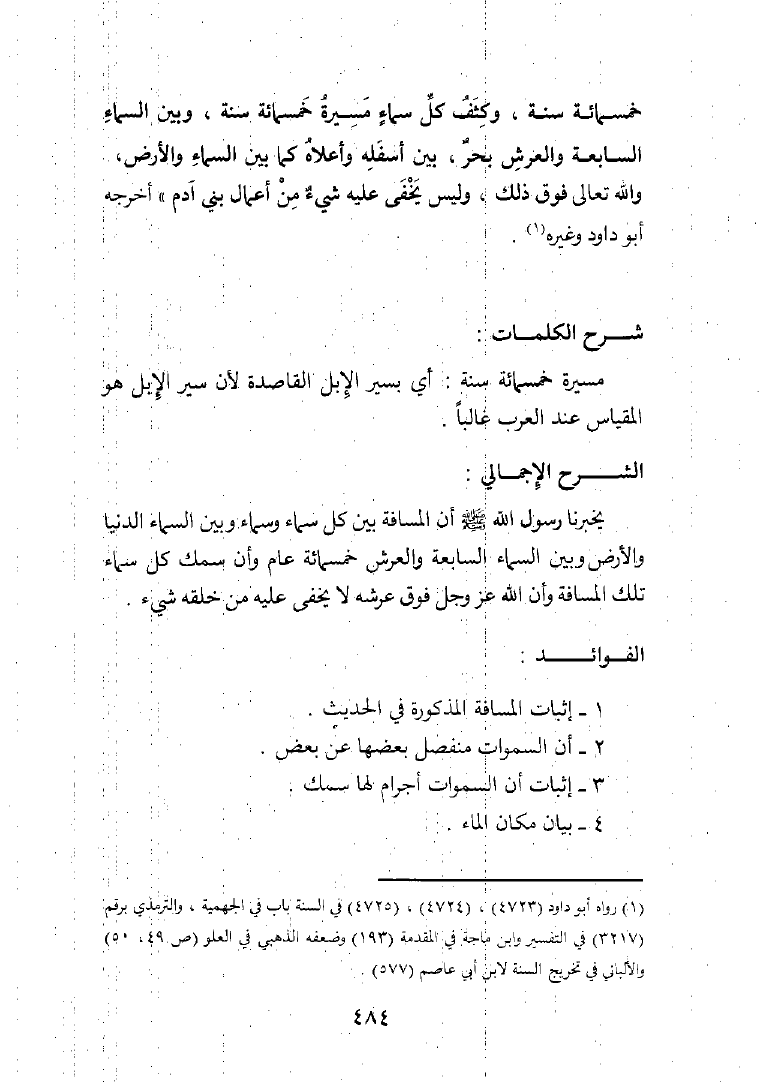 خمسـمائـة سنـة ، وكِثَفُ كلِّ سماءٍ مَسِيرةُ خَمسمائة سنة ، وبين السماءِ
السـابعـة والعرشِ بحرٌ ، بين أسفَلِه وأعلاهُ كما بين السماءِ والأرض،
والله تعالى فوق ذلك ، وليس يَخْفَى عليه شيءٌ مِنْ أعمال بني آدم » أخرجه
أبو داود وغيره(١) .
شــرح الكلمــات :
مسيرة خمسمائة سنة : أي بسير الإِبل القاصدة لأن سير الإِبل هو
المقياس عند العرب غالباً .
الشــــرح الإِجمــالي :
يخبرنا رسول الله ﷺ أن المسافة بين كل سماء وسماء وبين السماء الدنيا
والأرض وبين السماء السابعة والعرش خمسمائة عام وأن سمك كل سماء
تلك المسافة وأن الله عز وجل فوق عرشه لا يخفى عليه من خلقه شيء .
الفــوائــــد :
١ ـ إثبات المسافة المذكورة في الحديث .
٢ ـ أن السموات منفصل بعضها عن بعض .
٣ ـ إثبات أن السموات أجرام لها سمك .
٤ ـ بيان مكان الماء .
(١) رواه أبو داود (٤٧٢٣) ، (٤٧٢٤) ، (٤٧٢٥) في السنة باب في الجهمية ، والترمذي برقم
(٣٢١٧) في التفسير وابن ماجة في المقدمة (١٩٣) وضعفه الذهبي في العلو (ص ٤٩، ٥٠)
والألباني في تخريج السنة لابن أبي عاصم (٥٧٧) .
٤٨٤